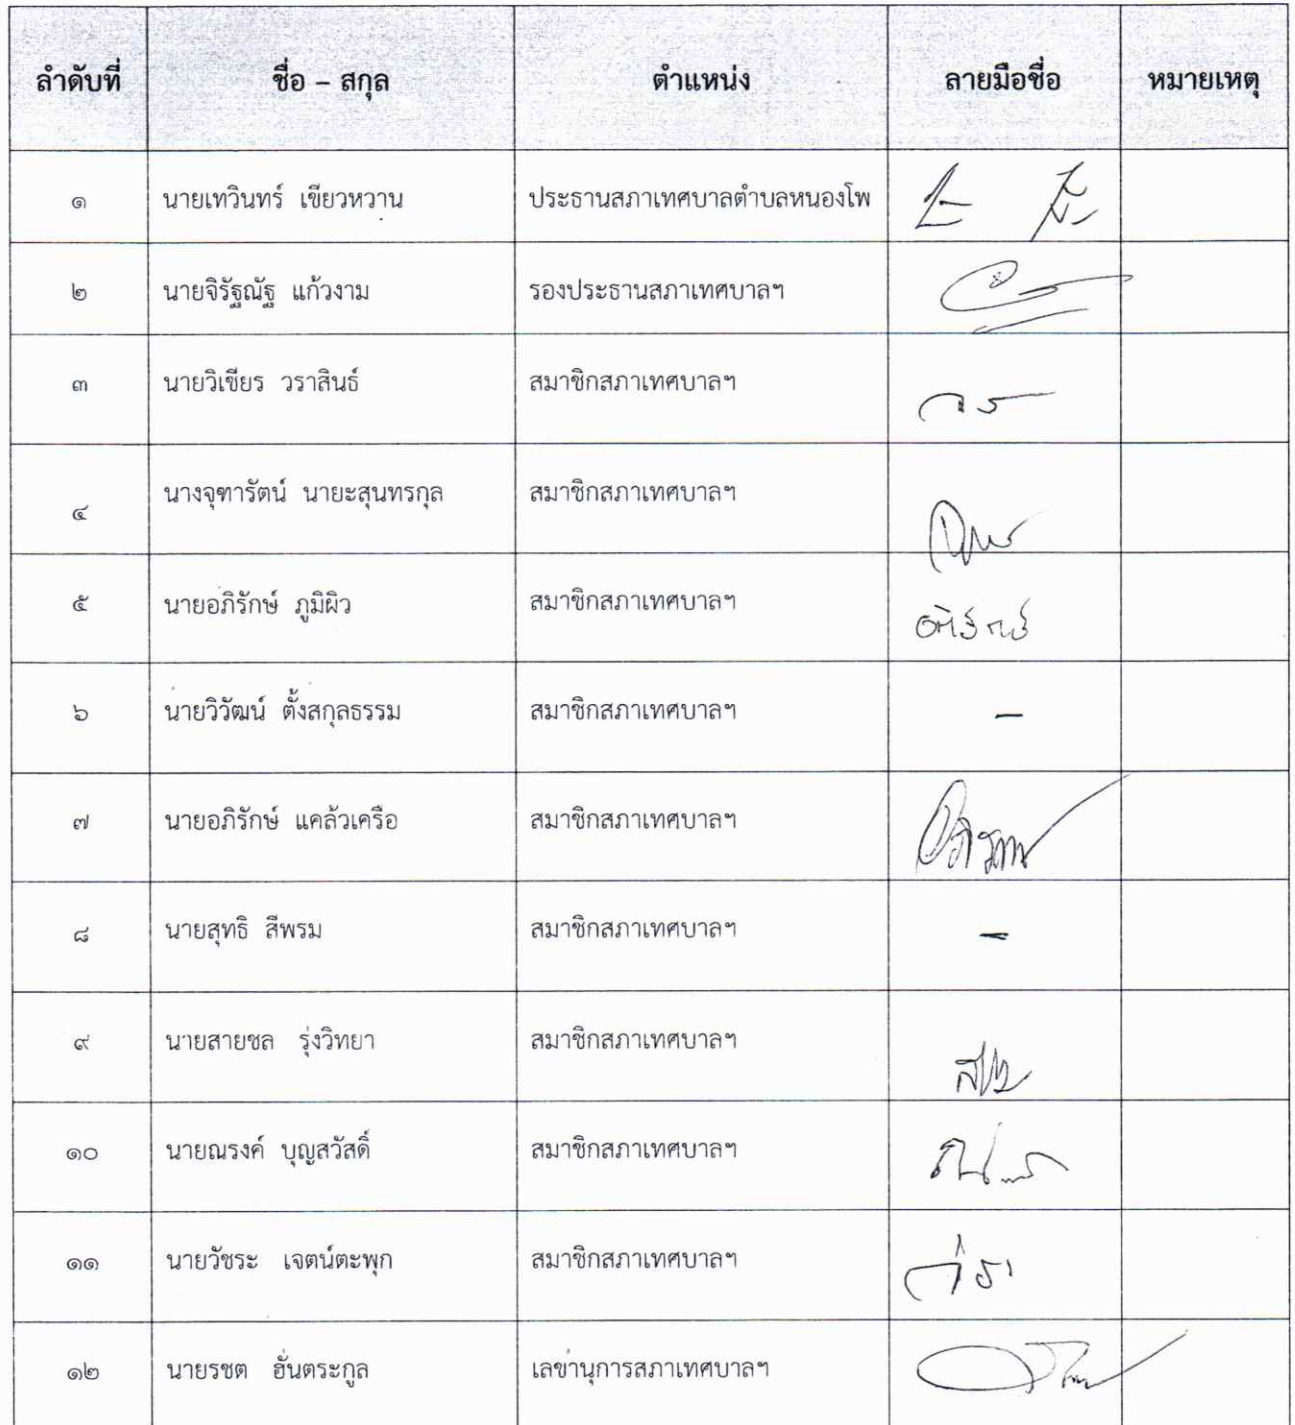 ลำดับที่ ชื่อ – สกุล ตำแหน่ง ลายมือชื่อ หมายเหตุ
๑ นายเทวินทร์ เขียวหวาน ประธานสภาเทศบาลตำบลหนองโพ
๒ นายจิรัฐณัฐ แก้วงาม รองประธานสภาเทศบาลฯ
๓ นายวิเชียร วราสินธ์ สมาชิกสภาเทศบาลฯ
๔ นางจุฑารัตน์ นายะสุนทรกุล สมาชิกสภาเทศบาลฯ
๕ นายอภิรักษ์ ภูมิผิว สมาชิกสภาเทศบาลฯ อภิรักษ์
๖ นายวิวัฒน์ ตั้งสกุลธรรม สมาชิกสภาเทศบาลฯ –
๗ นายอภิรักษ์ แคล้วเครือ สมาชิกสภาเทศบาลฯ
๘ นายสุทธิ สีพรม สมาชิกสภาเทศบาลฯ –
๙ นายสายชล รุ่งวิทยา สมาชิกสภาเทศบาลฯ
๑๐ นายณรงค์ บุญสวัสดิ์ สมาชิกสภาเทศบาลฯ
๑๑ นายวัชระ เจตน์ตะพุก สมาชิกสภาเทศบาลฯ
๑๒ นายรชต ฮั่นตระกูล เลขานุการสภาเทศบาลฯ